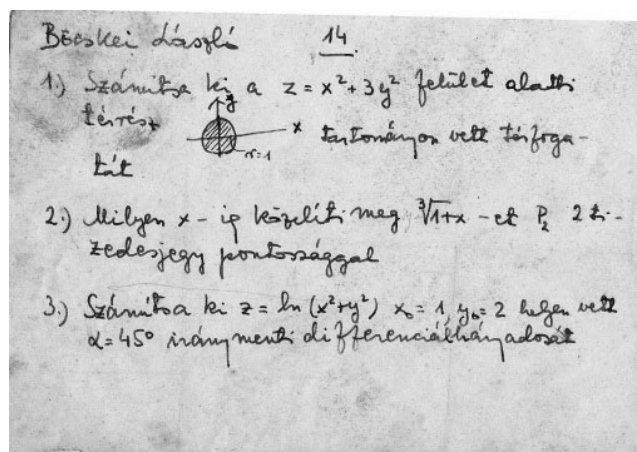 Böcskei László 14.
1.) Számítsa ki a z = x² + 3y² felület alatti
térrész y x r=1 tartományon vett térfoga-
tát
2.) Milyen x - ig közelíti meg ∛1+x - et P₂ 2 ti-
zedesjegy pontossággal
3.) Számítsa ki z = ln (x²+y²) x₀ = 1, y₀ = 2 helyen vett
α = 45° iránymenti differenciálhányadosát